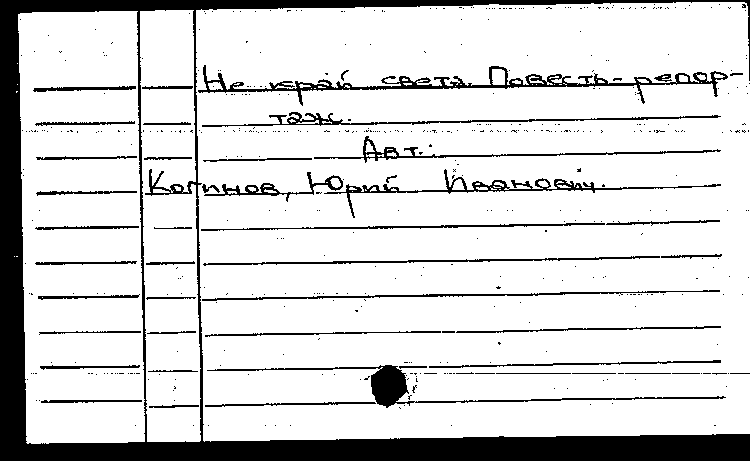 Не край света. Повесть-репор-
таж.
Авт.:
Когинов, Юрий Иванович.